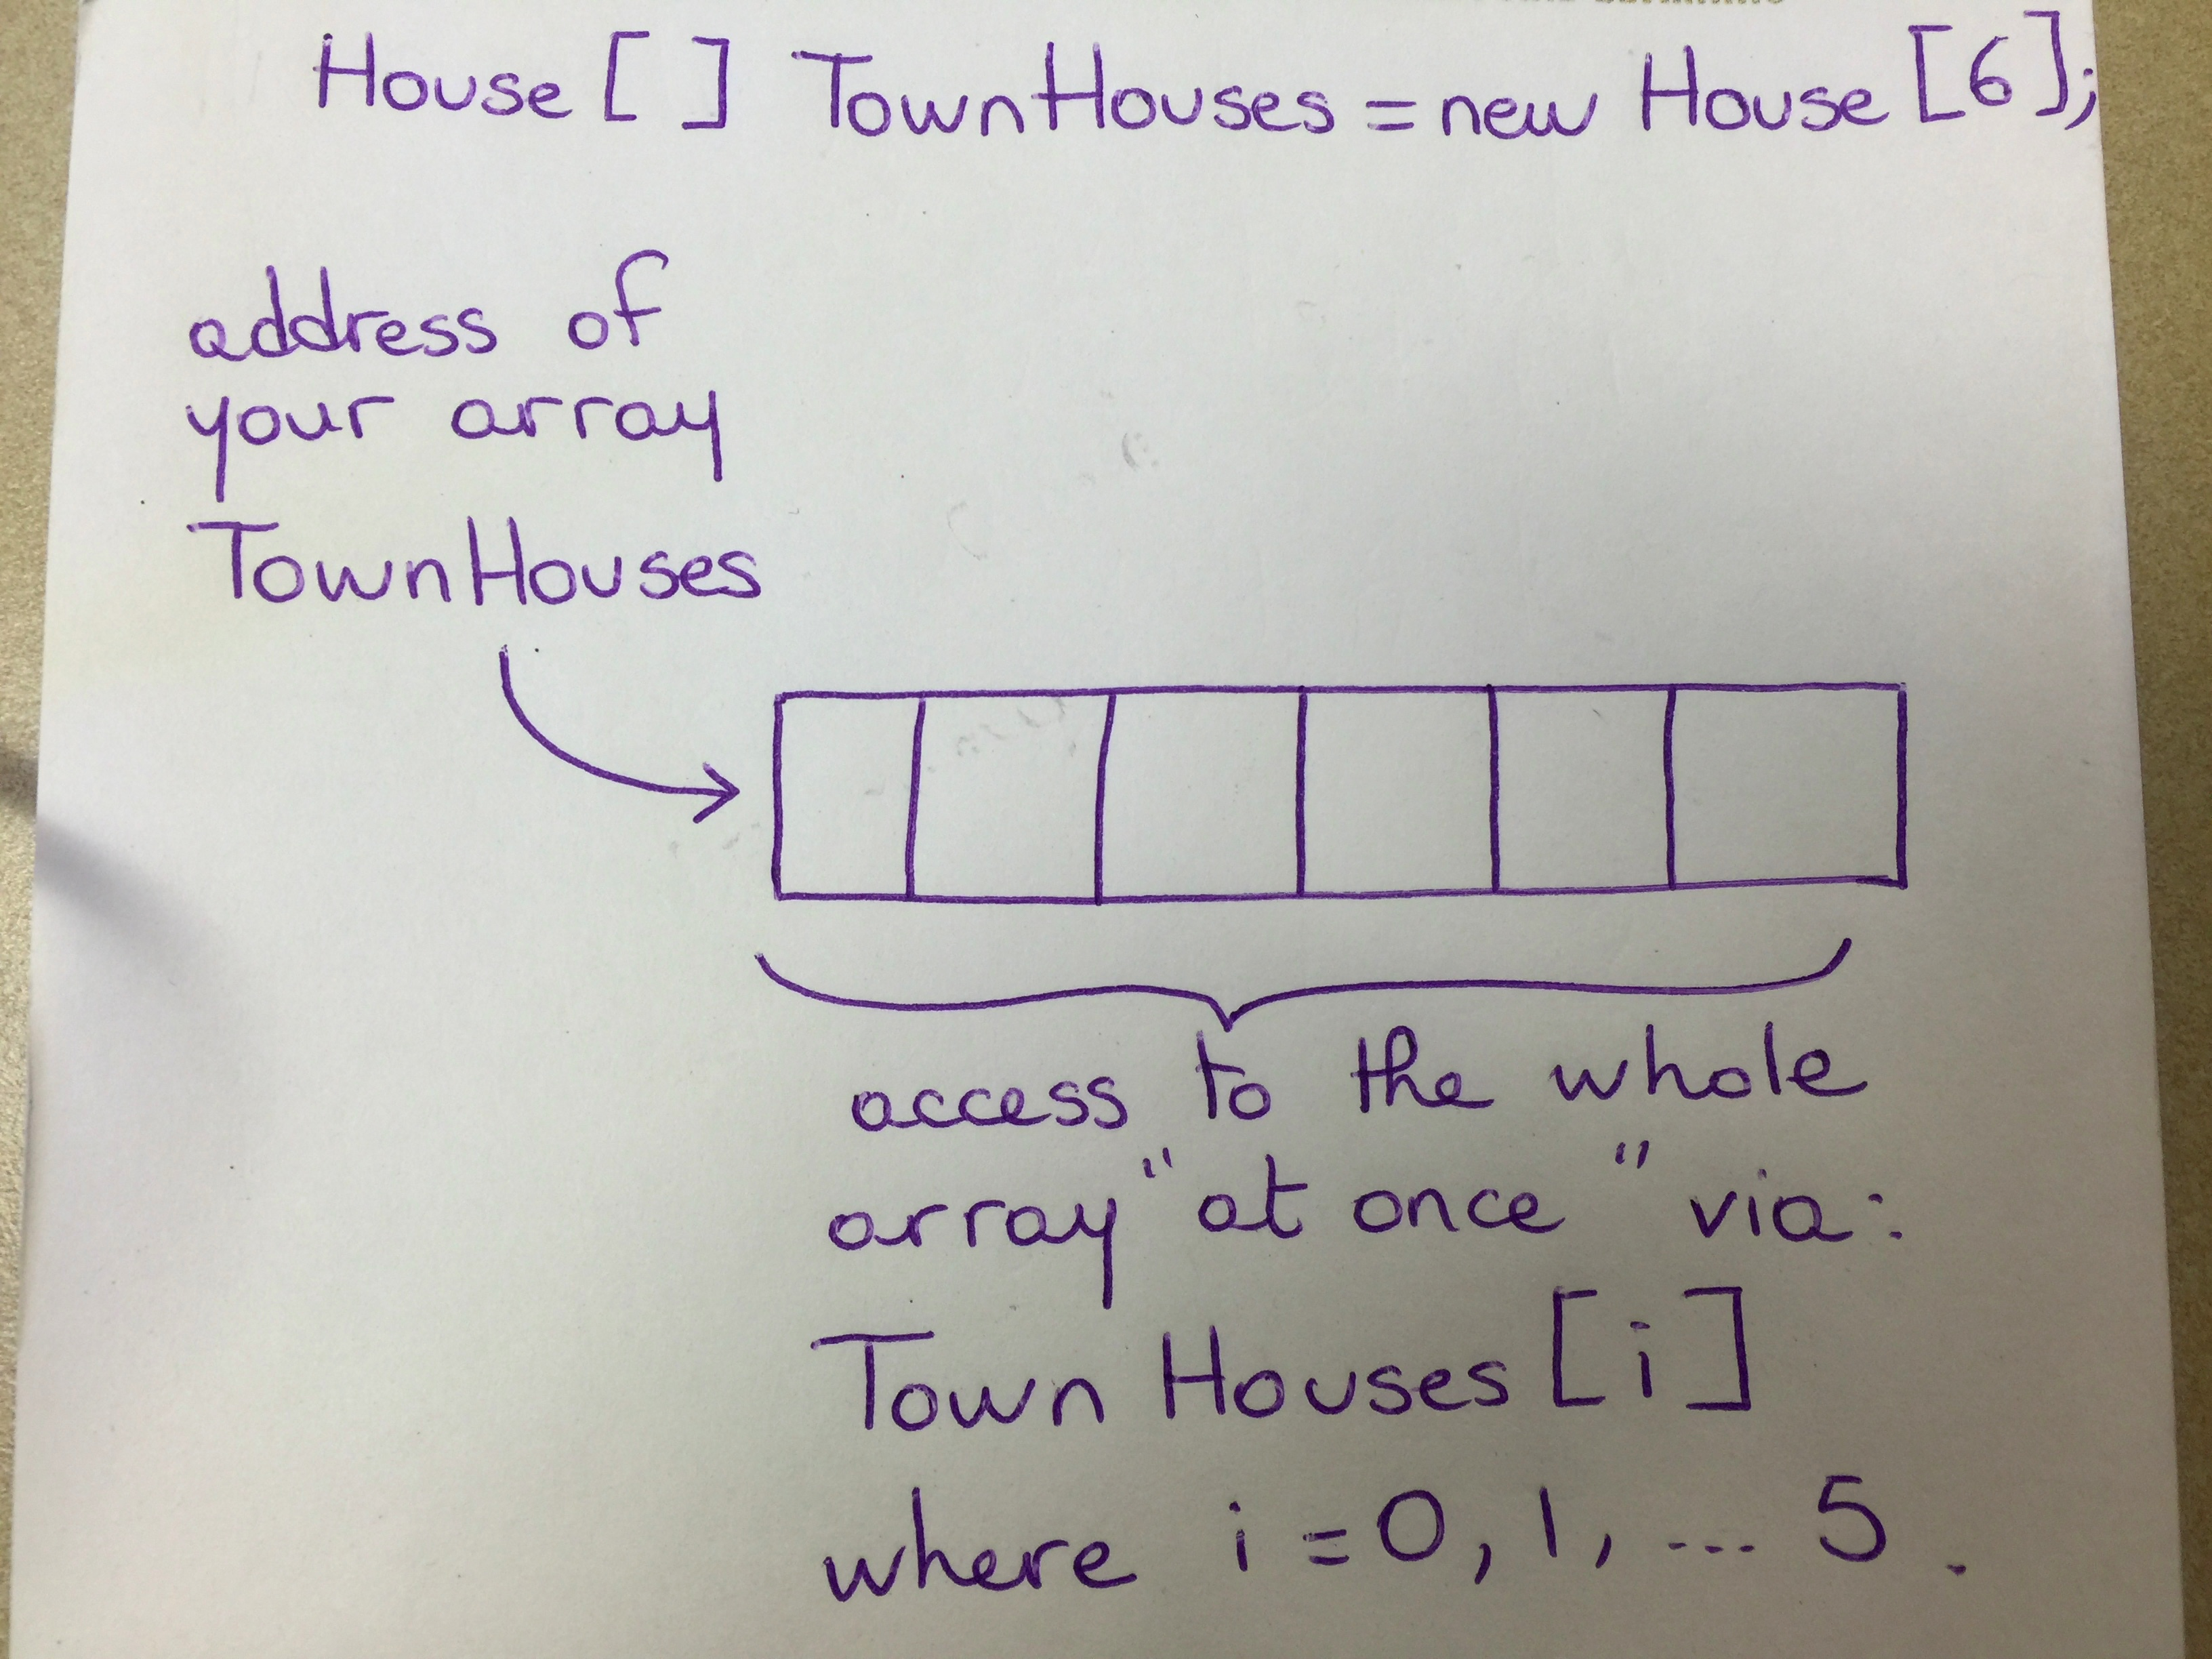 House [ ] TownHouses = new House [6];
address of
your array
TownHouses
access to the whole
array "at once" via:
Town Houses [i]
where i = 0, 1, ... 5.